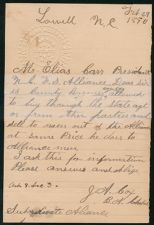 Lowell N.C.
Feb 27
1890
Mr Elias Carr President
N.C. F.S. Alliance Dear Sir
is County Business
to buy through the State agt
or from other parties and
sell to races out of the Alliance
at same Price he does to
Alliance men
I ask this for information
Please answer and oblige
J. A. Cox
Subordinate Alliance